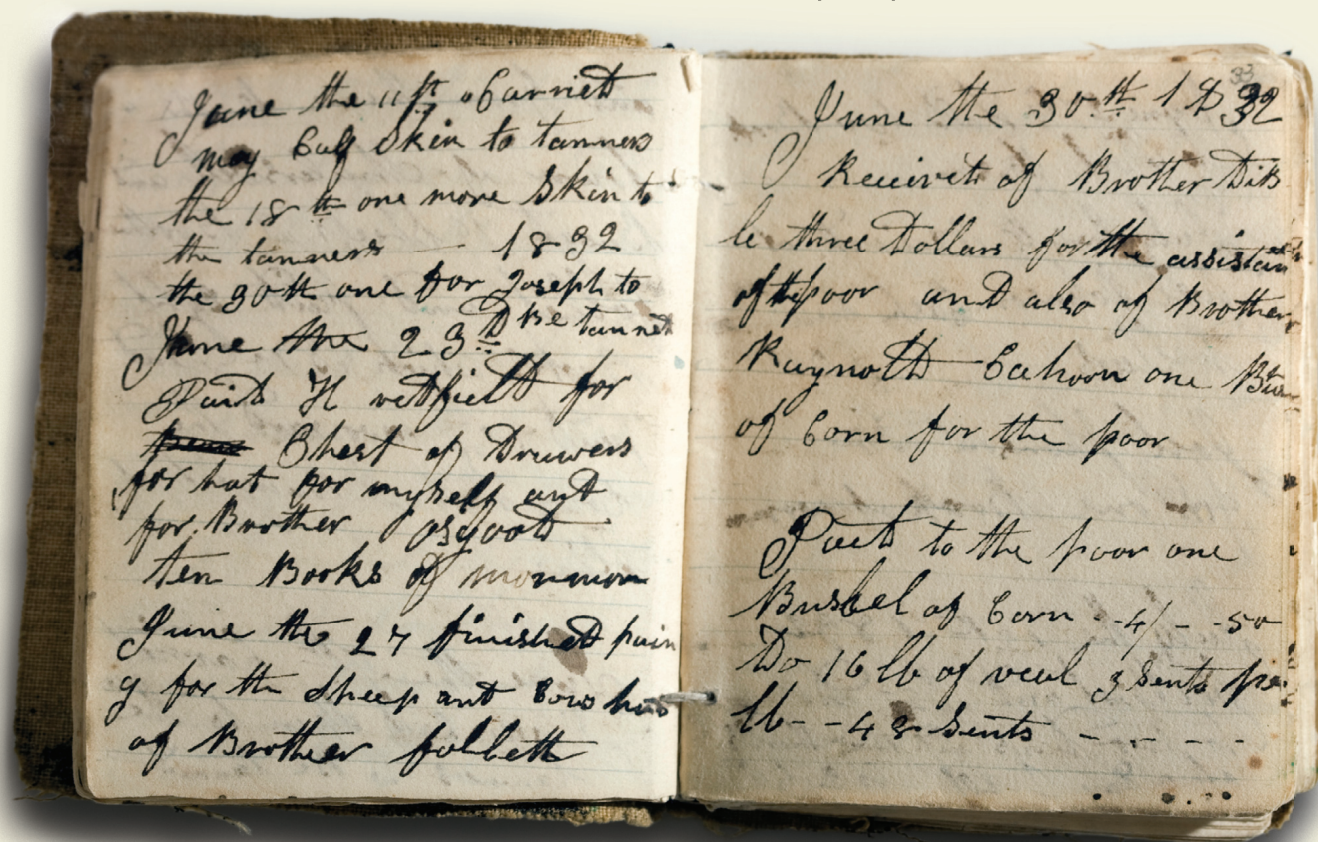 June the 11th Carried
my Calf Skin to tanners
the 18th one more Skin to
the tanners — 1832
the 30th one for Joseph to
Be tanned
June the 23D
Paid H redfield for
Chest of Drawers
for hat for myself and
for Brother osgood
ten Books of mormon
June the 27 finished pain
g for the Sheep and Cow had
of Brother follett
33
June the 30th 1832
Receivd of Brother Dib
le three Dollars for the assistan
of the poor and also of Brother
Raynold Cahoon one
of Corn for the poor
Paid to the poor one
Bushel of Corn - 4/ - - 50
Do 16 lb of veal 3 Sents per
lb - - 48 Sents - - - -